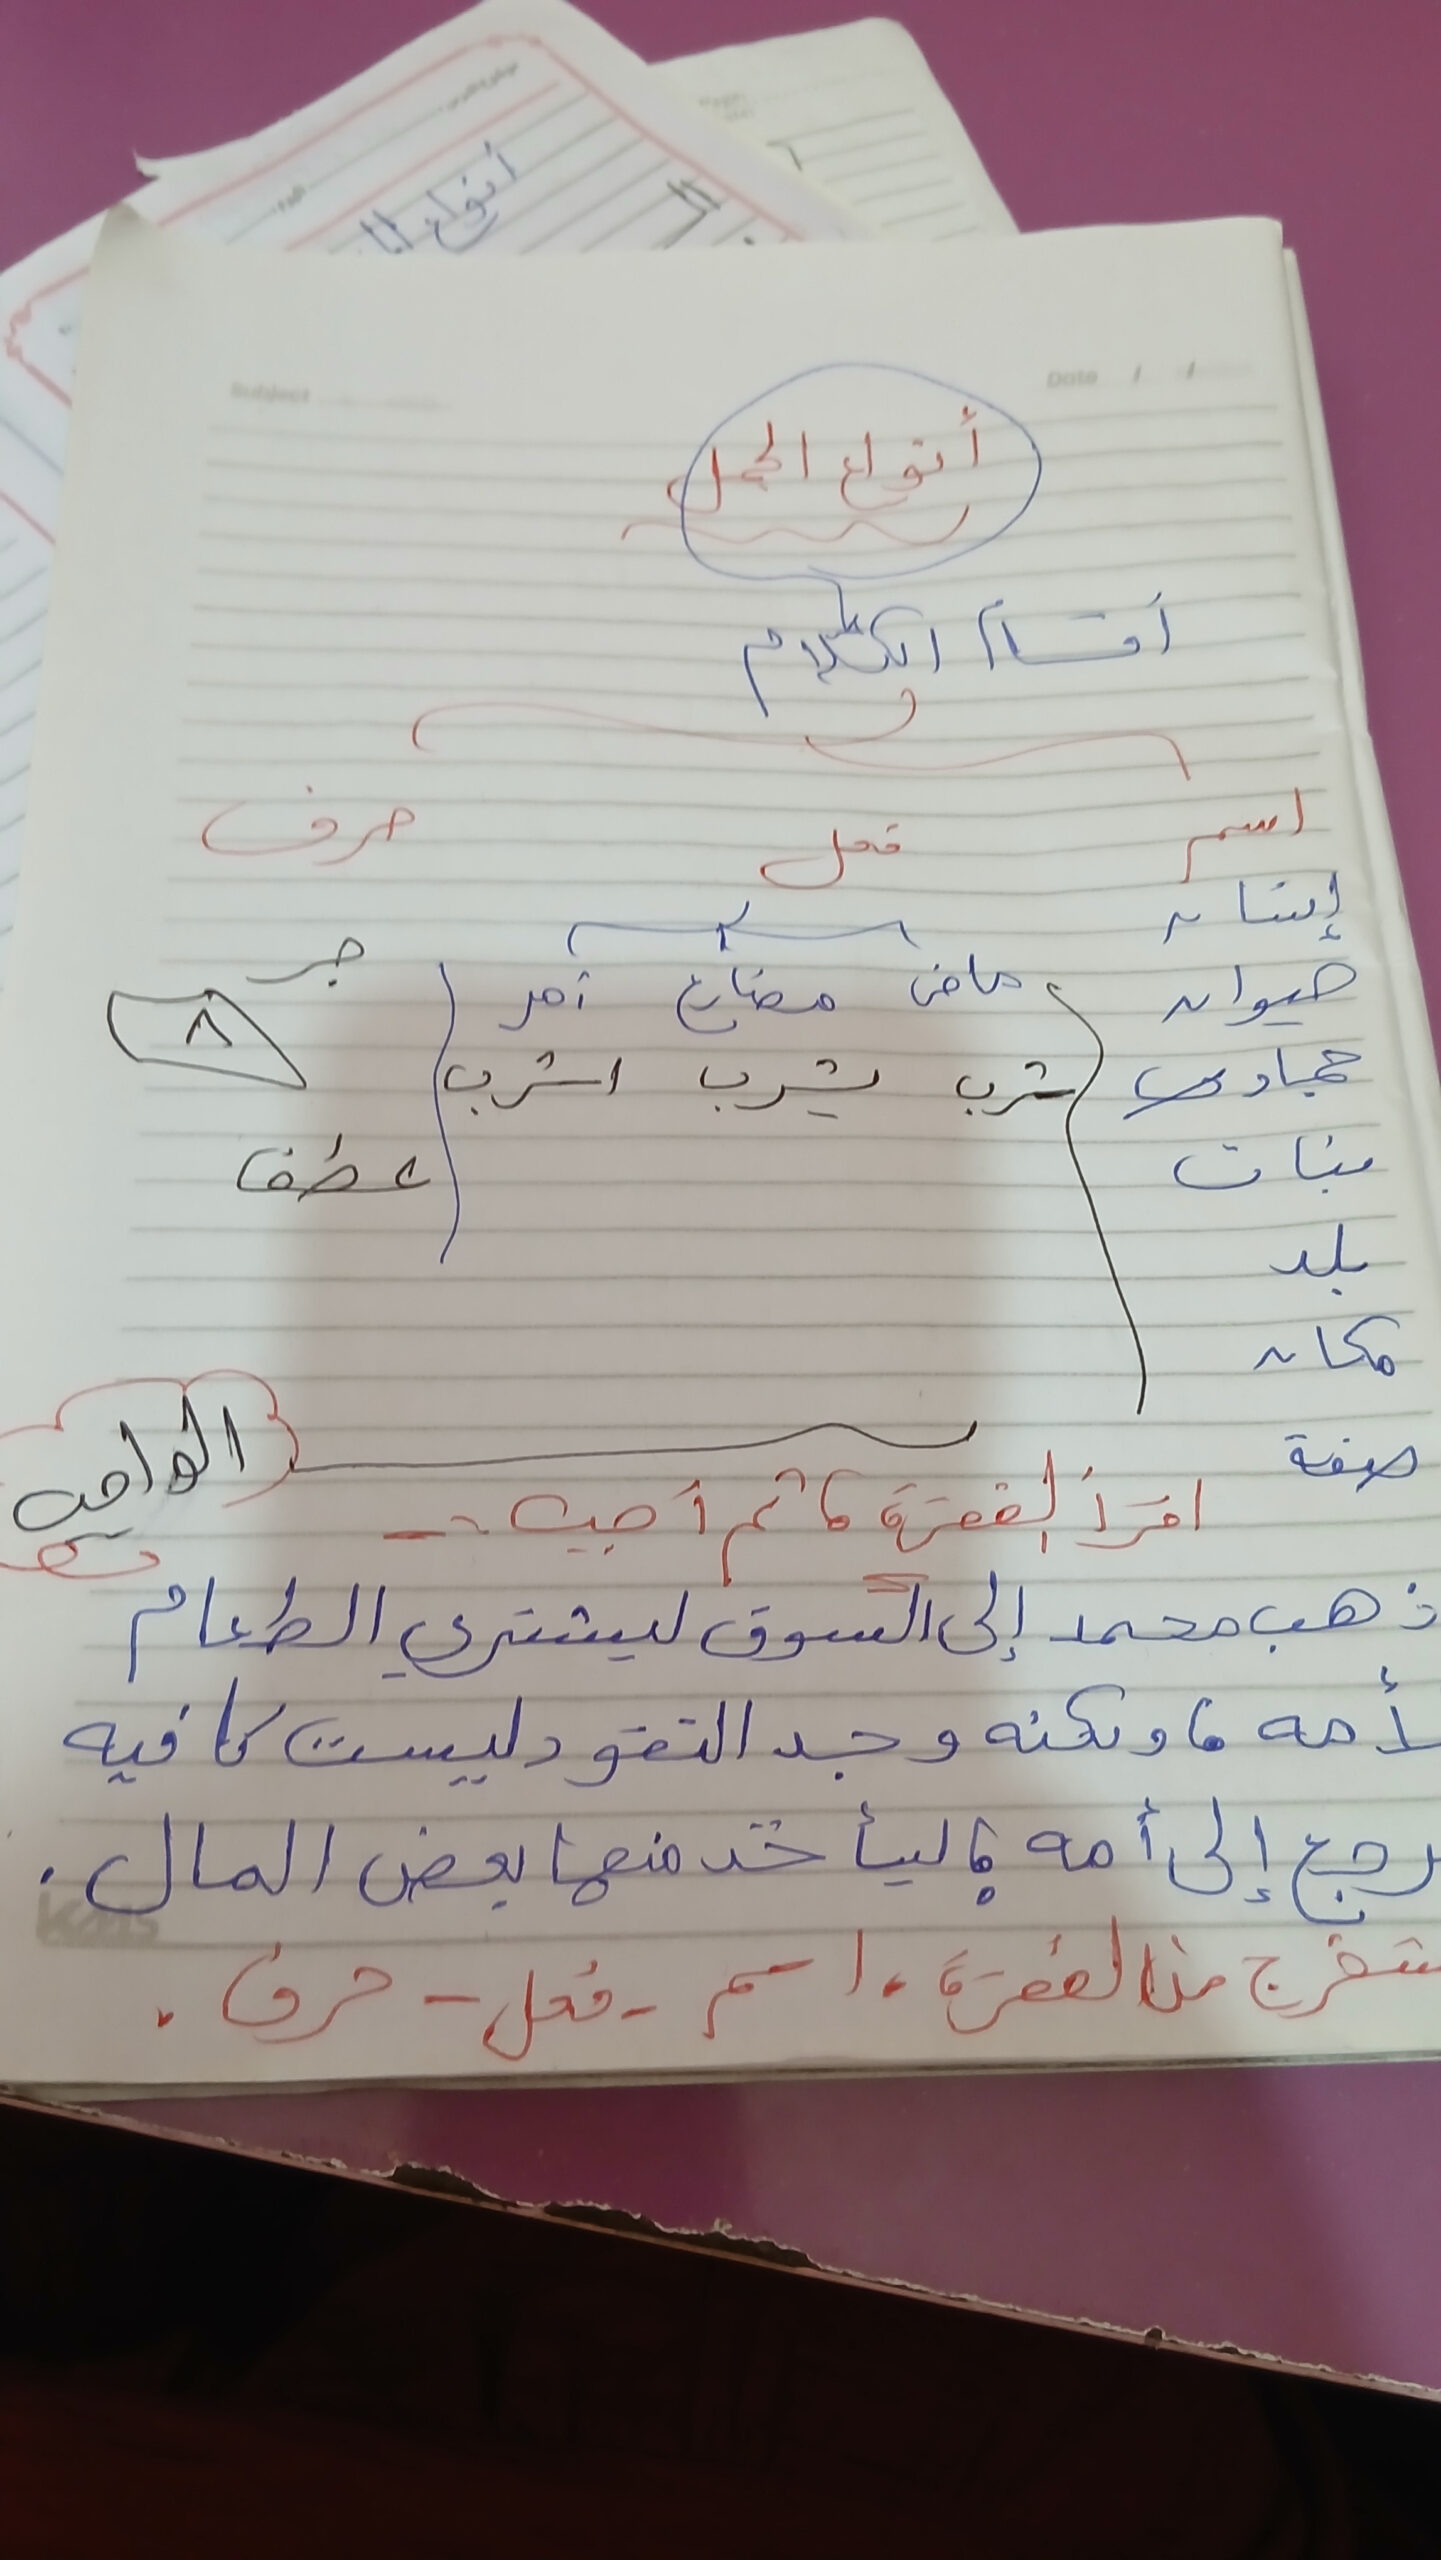 أنواع
Subject
Date / /
أنواع الجمل
أقسام الكلام
اسم فعل حرف
إنسان
حيوان ماض مضارع أمر جر
جماد شرب يشرب اشرب ٨
نبات عطف
بلد
مكان
صفة
الواجب
اقرأ الفقرة ثم أجيب :-
ذهب محمد إلى السوق ليشتري الطعام
لأمه ، ولكنه وجد النقود ليست كافيه
رجع إلى أمه ، ليأخذ منها بعض المال .
من الفقرة . اسم - فعل - حرف .